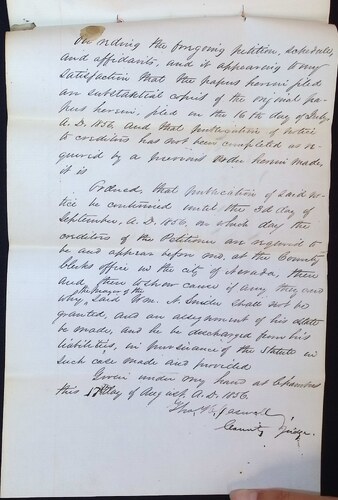 On reading the foregoing petition, schedules
and affidavits, and it appearing to my
satisfaction that the papers herein filed
are substantial copies of the original pa-
pers herein, filed on the 16th day of July
A.D. 1856, and that publication of notice
to creditors has not been completed as re-
quired by a previous order herein made,
it is
Ordered, that publication of said no-
tice be continued until the 3d day of
September, A.D. 1856, on which day the
creditors of the Petitioner are required to
be and appear before me, at the County
Clerks office in the city of Nevada, then
and there to show cause if any they can
the prayer of the
why, said Wm. N. shall not be
granted, and an assignment of his estate
be made, and he be discharged from his
liabilities, in pursuance of the Statute in
such case made and provided
Given under my hand at Chambers
this 17th day of August, A.D. 1856.
County Judge.